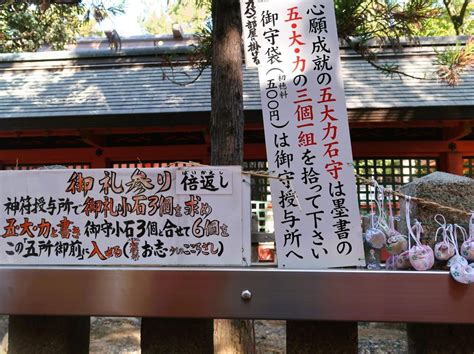 心願成就の五大力石守は墨書の
五・大・力の三個一組を拾って下さい
御守袋(初穂料五〇〇円)は御守授与所へ
御札参り 倍返し
神符授与所で御札小石3個を求め
五・大・力を書き御守小石3個と合せて6個を
この五所御前へ入れる(お志